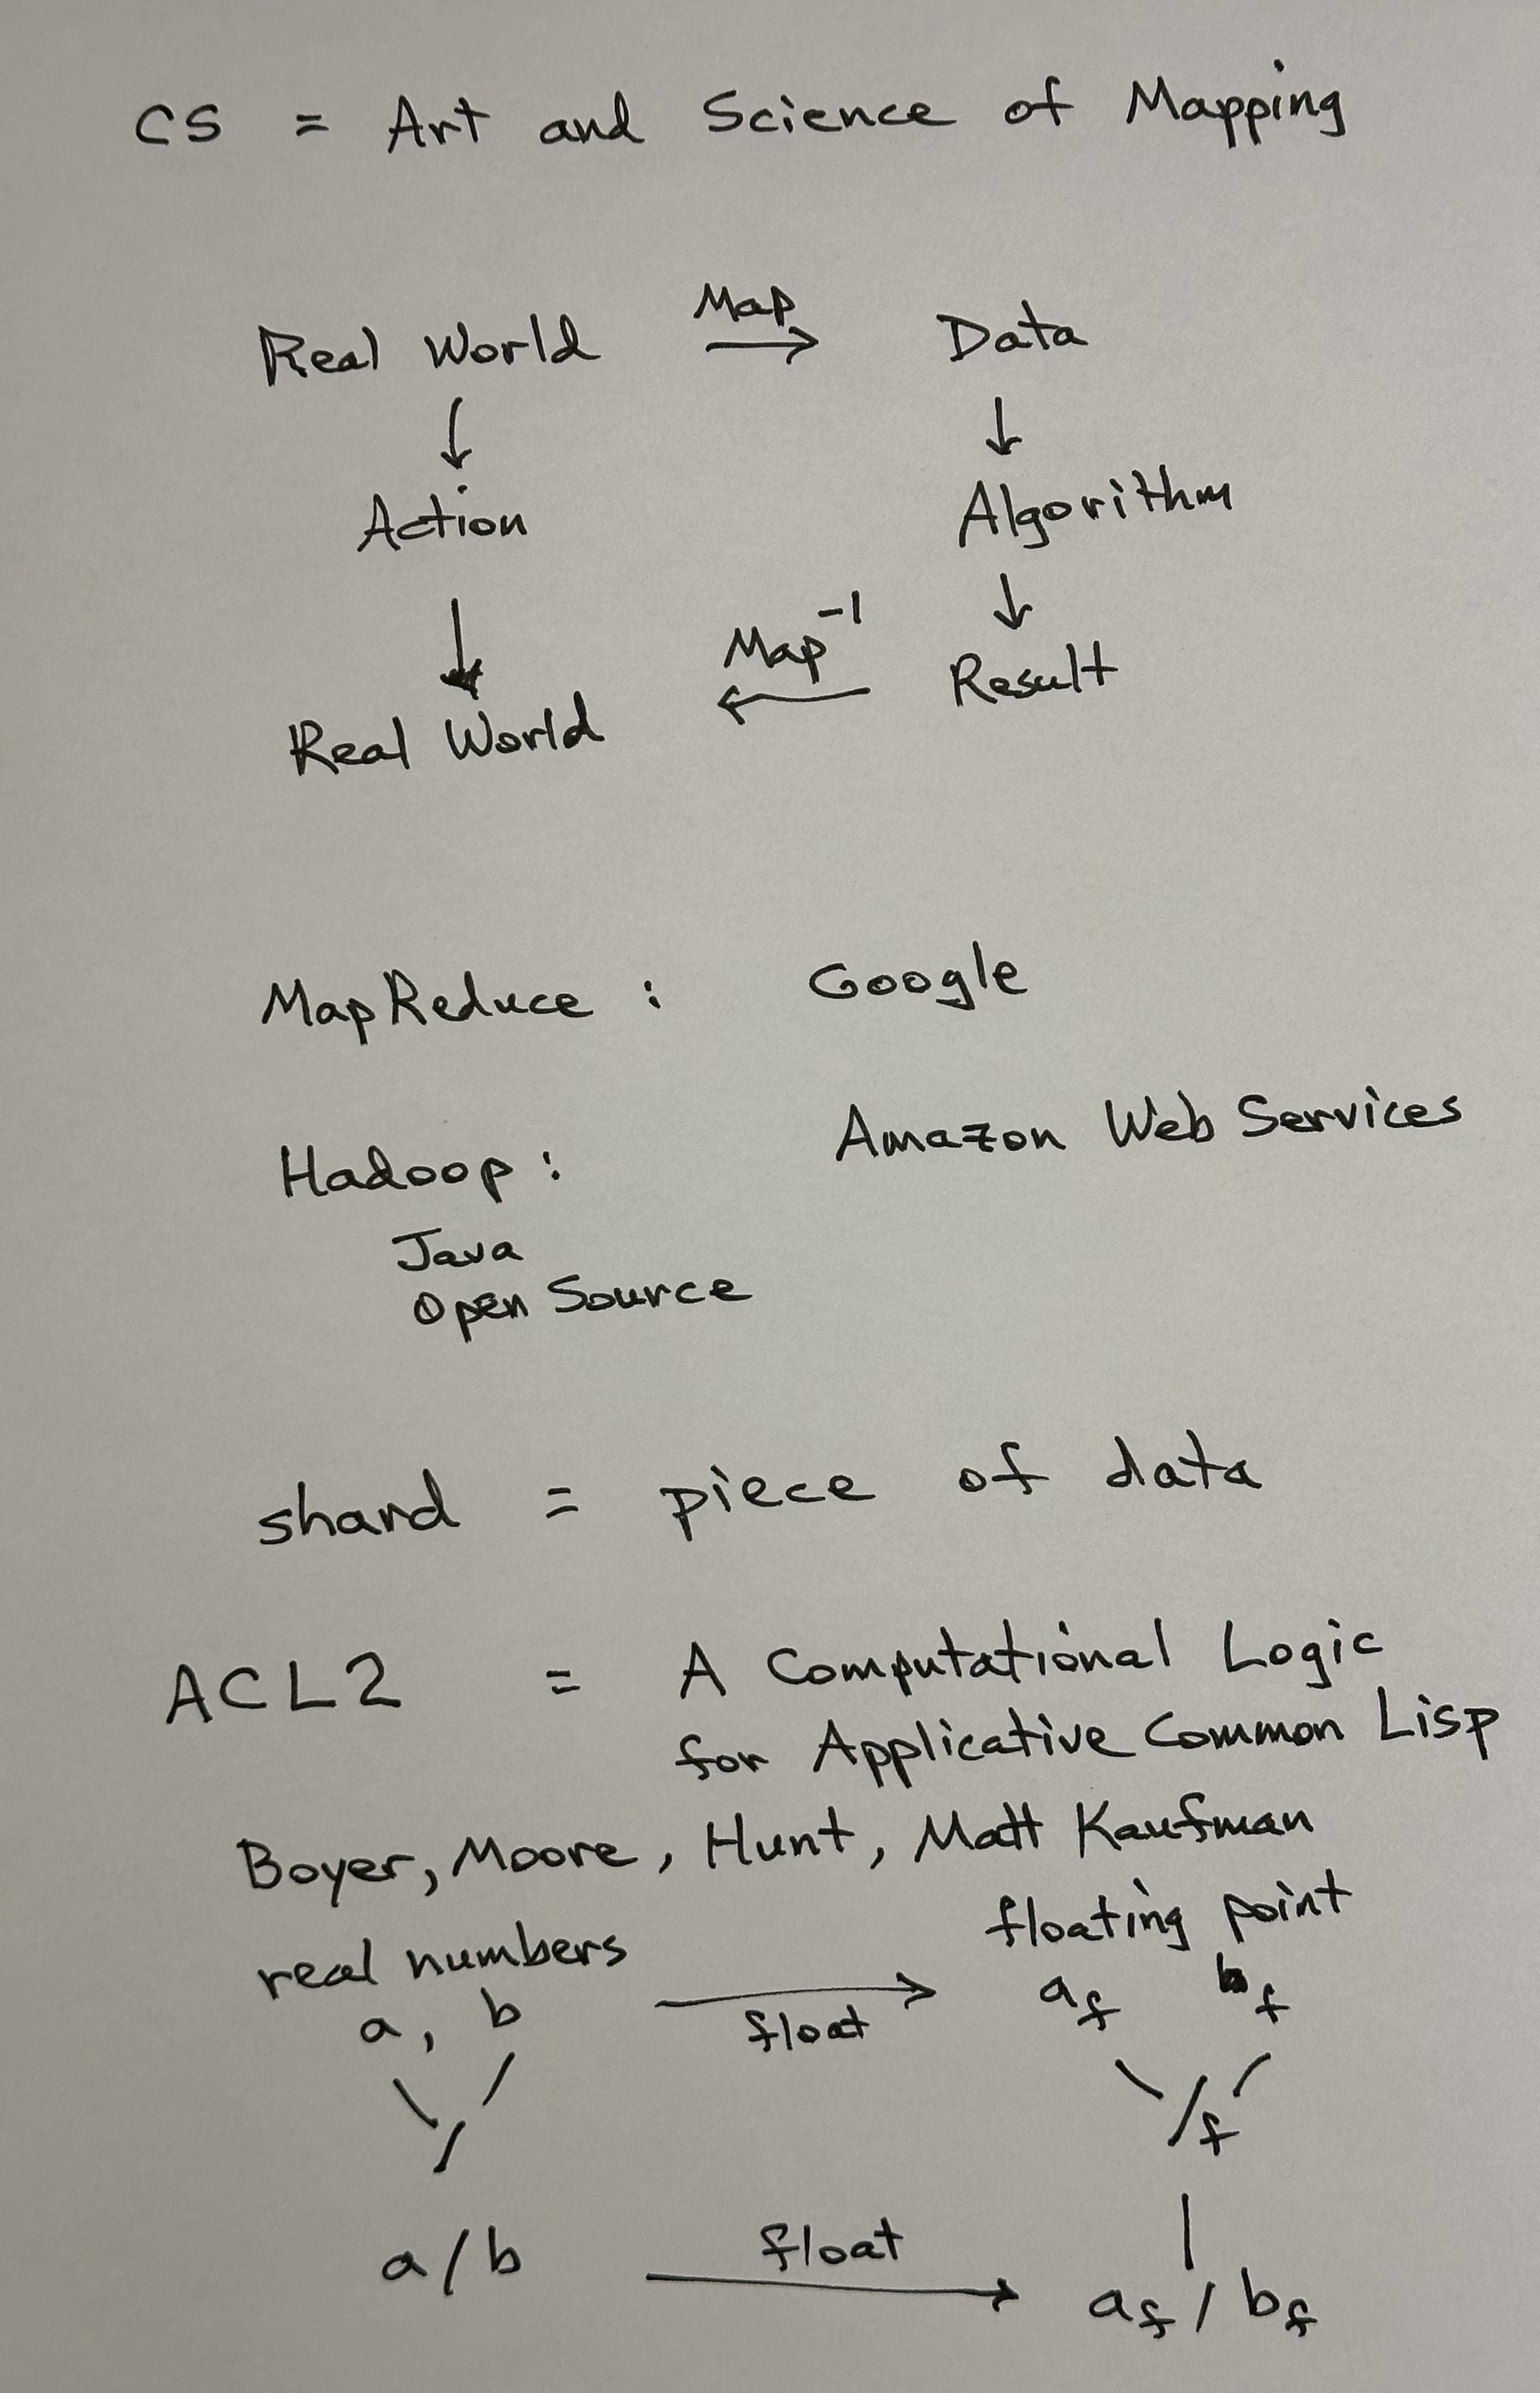 CS = Art and Science of Mapping
Real World Map → Data
↓ ↓
Action Algorithm
↓ ↓
Real World ← Map⁻¹ Result
MapReduce : Google
Amazon Web Services
Hadoop :
Java
Open Source
shard = piece of data
ACL2 = A Computational Logic
for Applicative Common Lisp
Boyer, Moore, Hunt, Matt Kaufman
real numbers floating point
a, b → float a_f b_f
\ / \ /
/ /f
|
a/b float → a_f / b_f